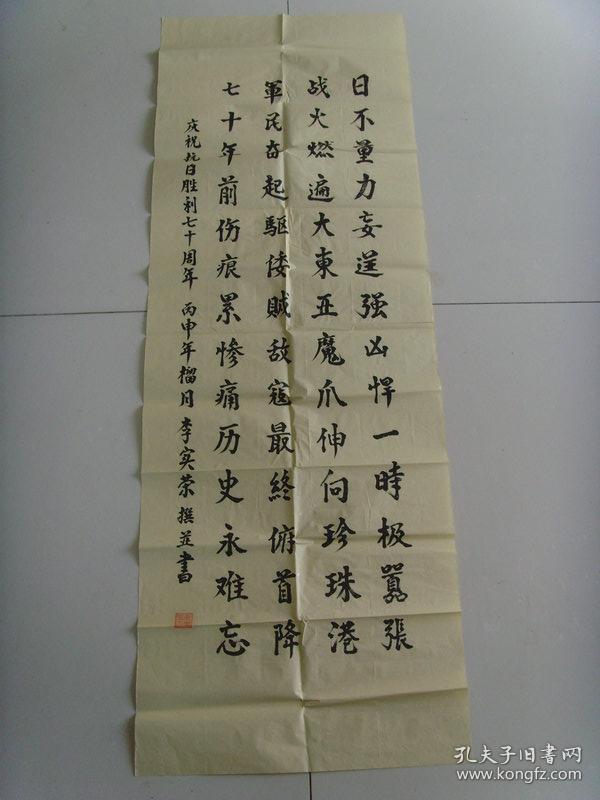 日不量力妄逞强凶悍一時极嚣張
战火燃遍大東亚魔爪伸向珍珠港
軍民奋起驅倭贼敌寇最終俯首降
七十年前伤痕累惨痛历史永难忘
庆祝抗日胜利七十周年 丙申年榴月 李实荣 撰並書
孔夫子旧書网
www.kongfz.com